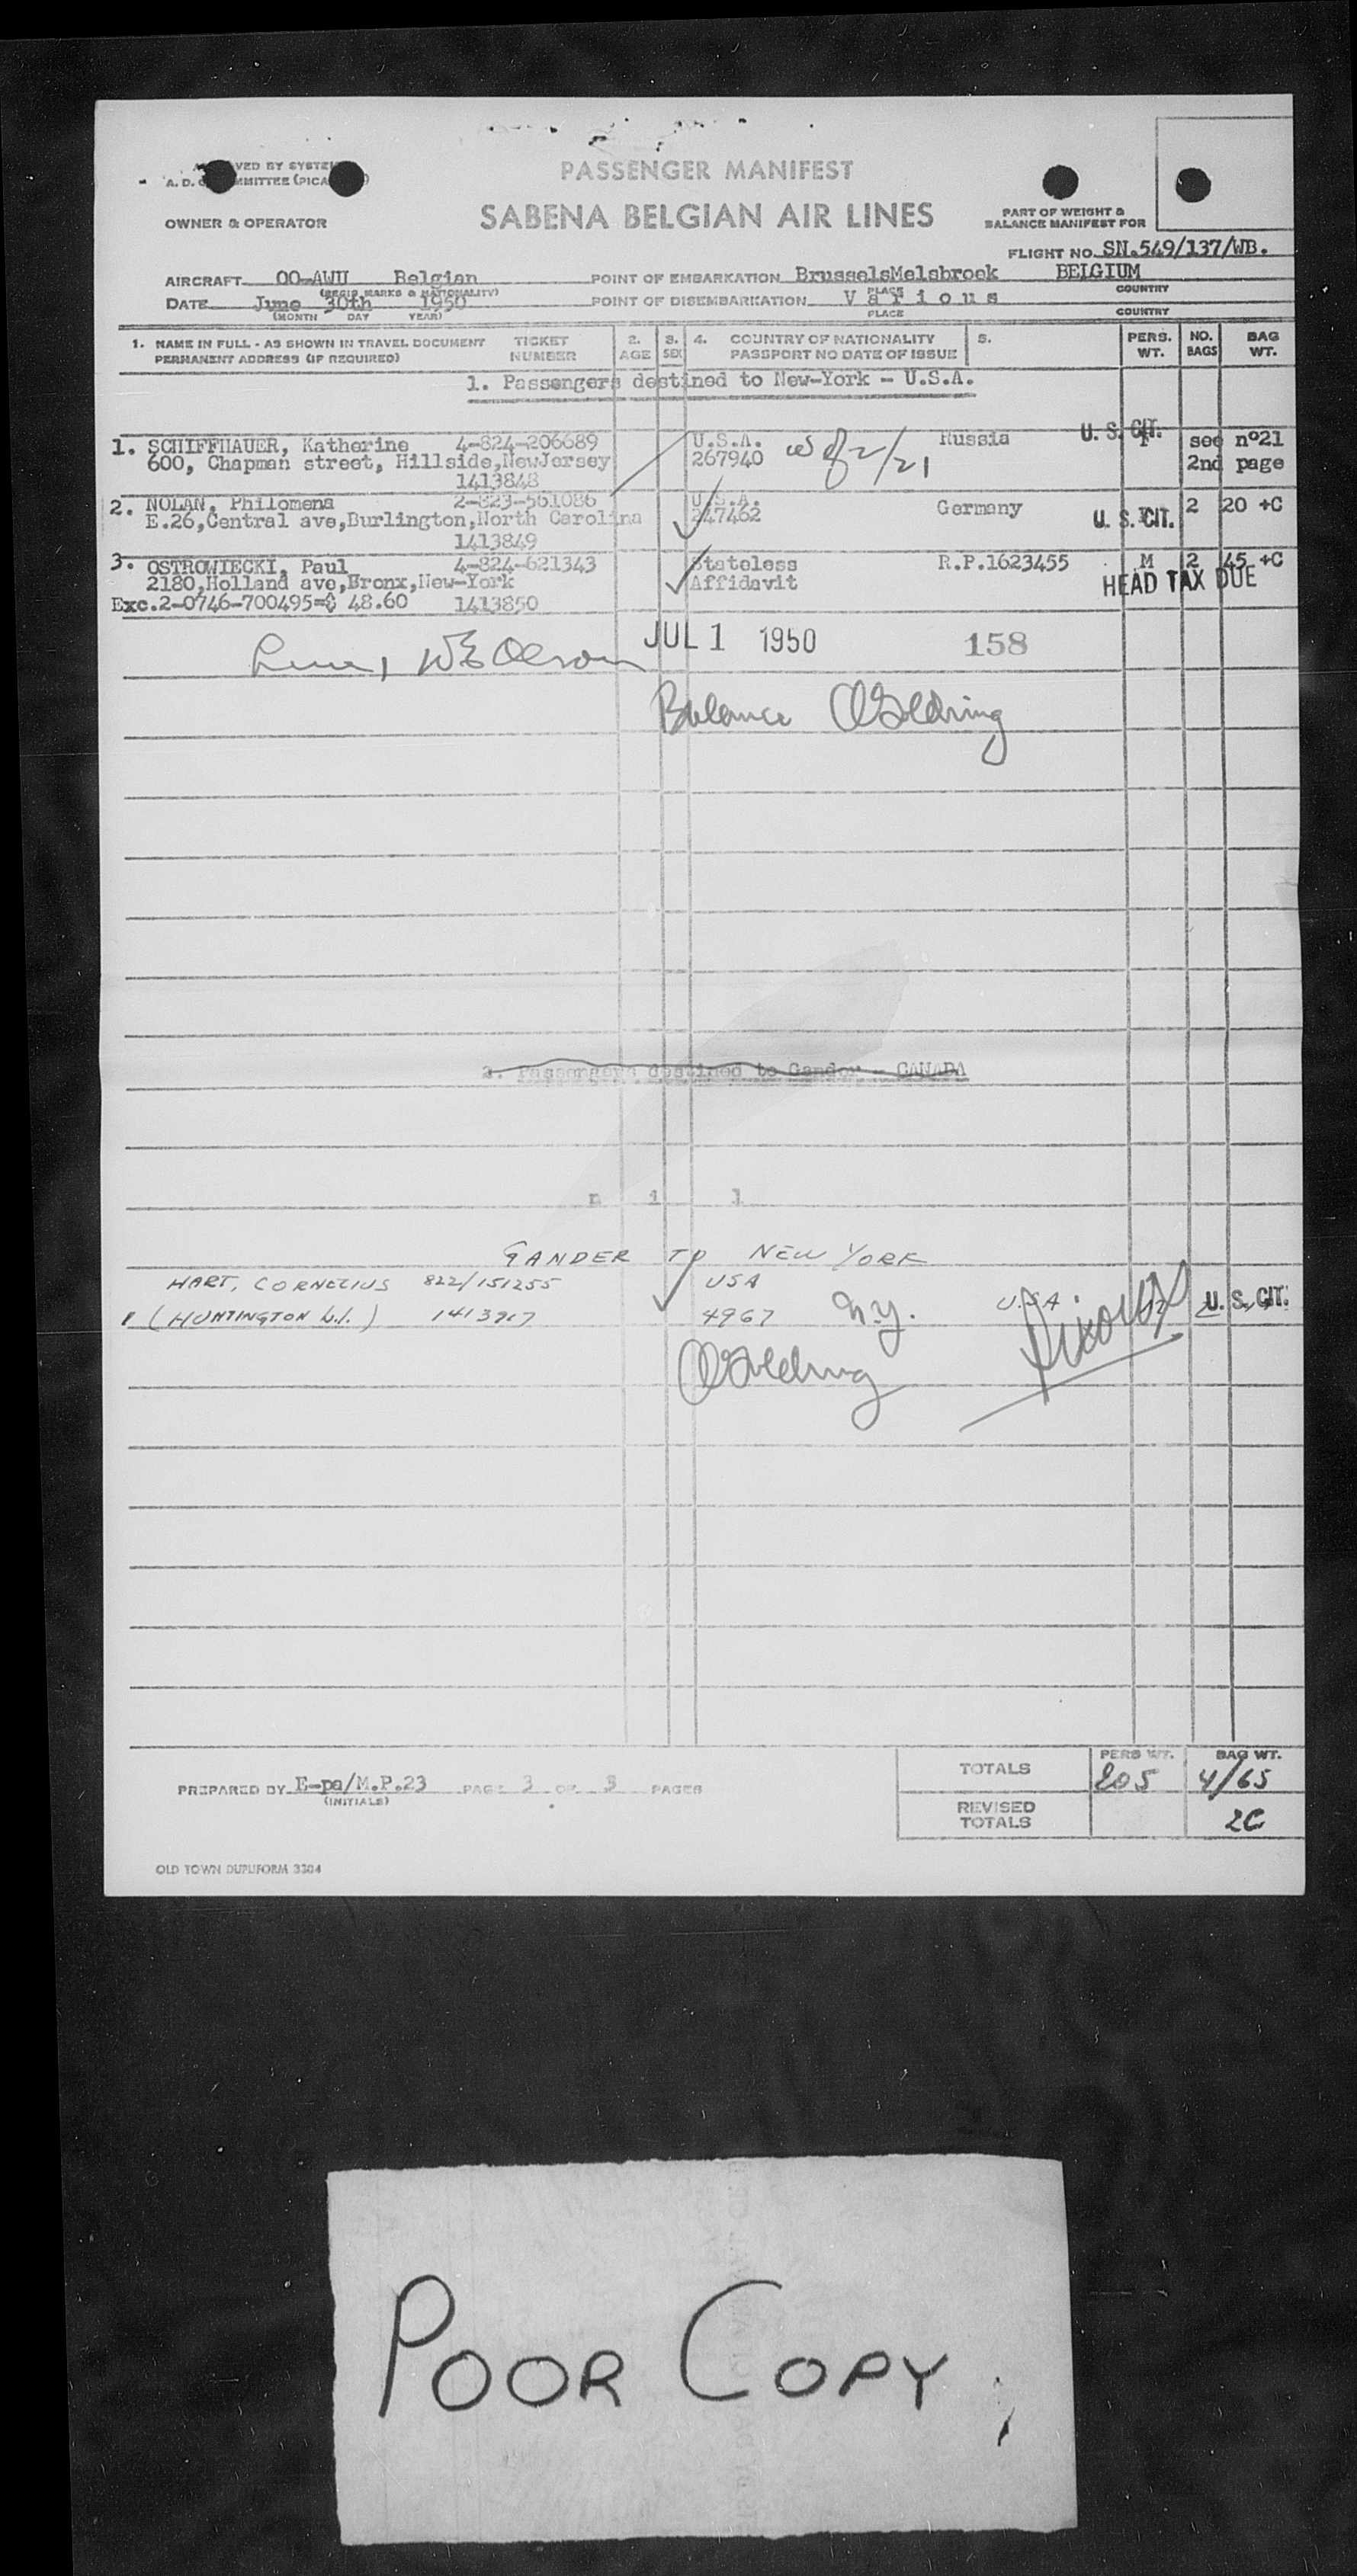 PASSENGER MANIFEST
SABENA BELGIAN AIR LINES
OWNER & OPERATOR
PART OF WEIGHT &
BALANCE MANIFEST FOR
FLIGHT NO. SN.549/137/WB.
AIRCRAFT OO-AWU Belgian POINT OF EMBARKATION BrusselsMelsbroek BELGIUM
(REGIS. MARKS & NATIONALITY) PLACE COUNTRY
DATE June 30th 1950 POINT OF DISEMBARKATION Various
(MONTH DAY YEAR) PLACE COUNTRY
1. NAME IN FULL - AS SHOWN IN TRAVEL DOCUMENT TICKET 2. 3. 4. COUNTRY OF NATIONALITY 5. PERS. NO. BAG
PERMANENT ADDRESS (IF REQUIRED) NUMBER AGE SEX PASSPORT NO DATE OF ISSUE WT. BAGS WT.
1. Passengers destined to New-York - U.S.A.
1. SCHIFFHAUER, Katherine 4-824-206689 U.S.A. Russia U. S. CIT. see nº21
600, Chapman street, Hillside,NewJersey 267940 2nd page
1413848
2. NOLAN, Philomena 2-823-561086 U.S.A. Germany U. S. CIT. 2 20 +C
E.26,Central ave,Burlington,North Carolina 247462
1413849
3. OSTROWIECKI, Paul 4-824-621343 Stateless R.P.1623455 M 2 45 +C
2180,Holland ave,Bronx,New-York Affidavit HEAD TAX DUE
Exc.2-0746-700495=$ 48.60 1413850
JUL 1 1950 158
Balance
2. Passengers destined to Gander - CANADA
n i l
GANDER TO NEW YORK
HART, CORNELIUS 822/151255 USA U.SA U. S. CIT.
(HUNTINGTON 4967 N.Y.
PREPARED BY E-pa/M.P.23 PAGE 3 OF 3 PAGES
(INITIALS)
TOTALS PERS WT. 205 BAG WT. 4/65
REVISED
TOTALS 2C
OLD TOWN DUPLIFORM 3304
POOR COPY